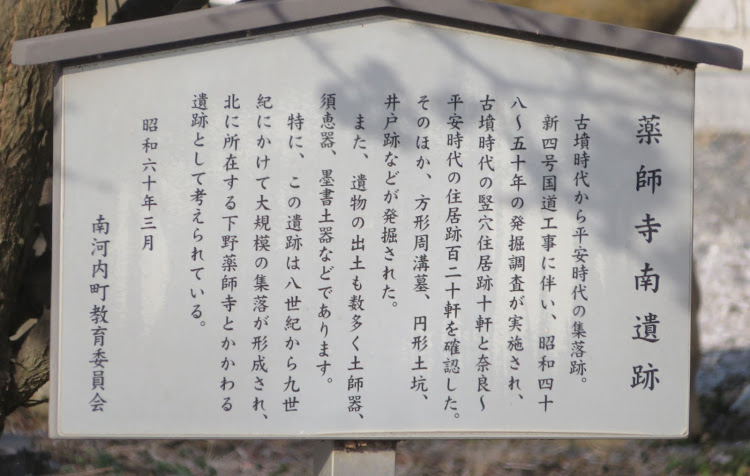 薬師寺南遺跡
古墳時代から平安時代の集落跡。
新四号国道工事に伴い、昭和四十
八〜五十年の発掘調査が実施され、
古墳時代の竪穴住居跡十軒と奈良〜
平安時代の住居跡百二十軒を確認した。
そのほか、方形周溝墓、円形土坑、
井戸跡などが発掘された。
また、遺物の出土も数多く土師器、
須恵器、墨書土器などであります。
特に、この遺跡は八世紀から九世
紀にかけて大規模の集落が形成され、
北に所在する下野薬師寺とかかわる
遺跡として考えられている。
昭和六十年三月
南河内町教育委員会